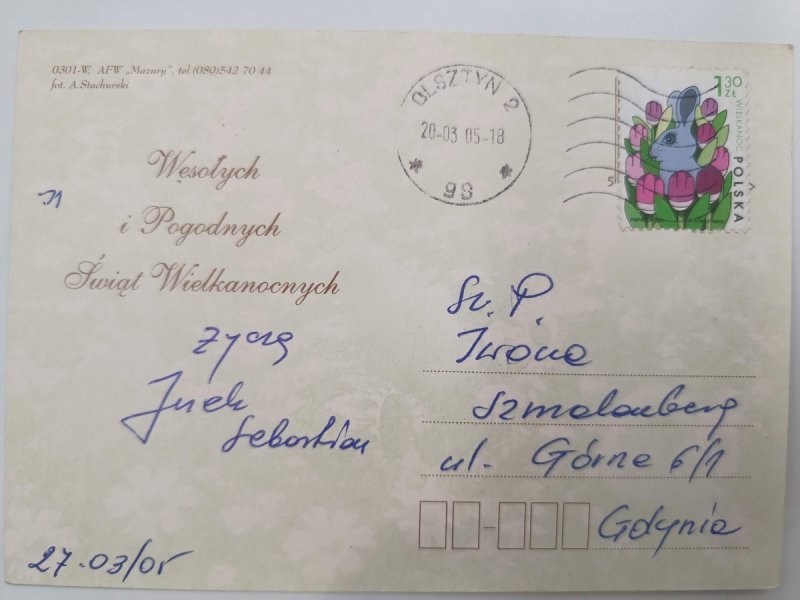 0301-W. AFW „Mazury”, tel.(089)542 70 44
fot. A.Stachurski
OLSZTYN 2
20-03 05-18
9S
1 30 ZŁ
WIELKANOC
POLSKA
5
Wesołych
i Pogodnych
Świąt Wielkanocnych
życzą
Jurek
Sebastian
27-03/05
Sz. P.
Iwona
Szmalenberg
ul. Górna 6/1
Gdynia